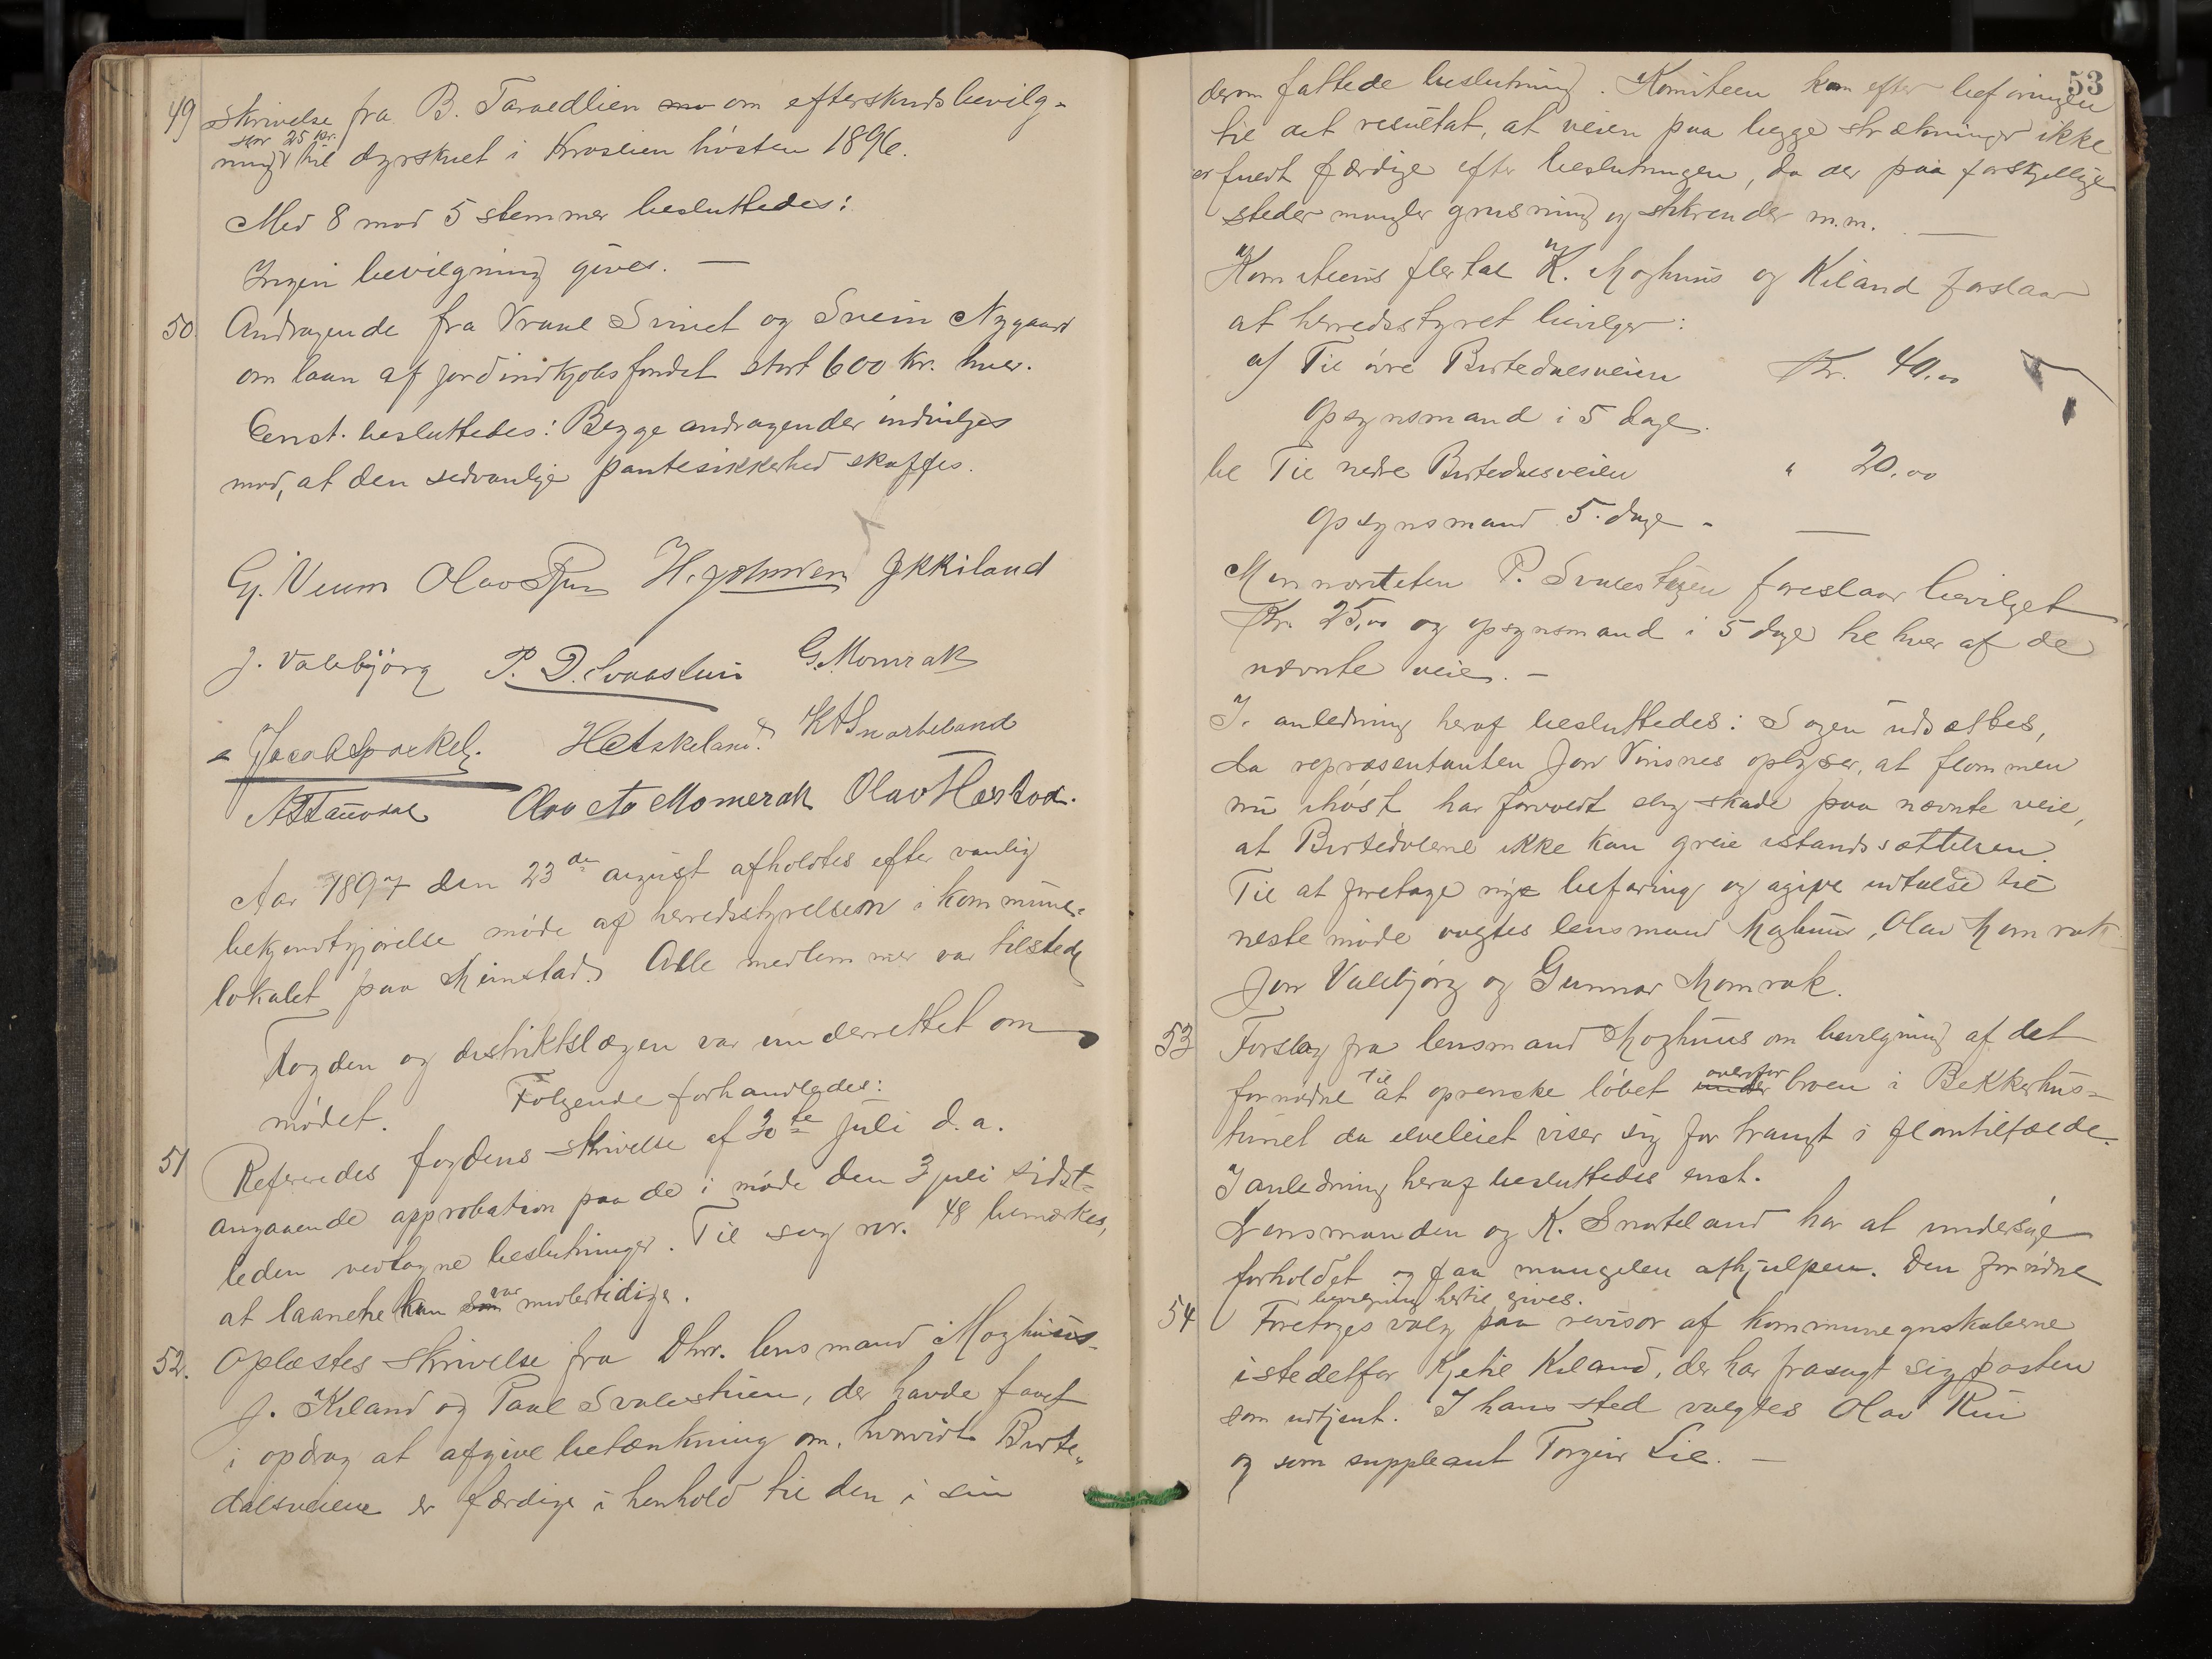 49 Skrivelse fra B. Taraedlien om efterskudsbevilg-
stor 25 kr.
ning til dyrskuet i Kroslien høsten 1896.
Med 8 mod 5 stemmer besluttedes:
Ingen bevilgning gives. —
50. Andragende fra Vraal Svinet og Svein Nygaard
om laan af jordindkjøbsfondet stort 600 kr. hver.
Enst. besluttedes: Begge andragender indvilges
mod, at den sedvanlige pantesikkerhed skaffes.
G. Veum Olav H. Johnsen J K Kiland
J. Valebjörg P. D. Svalastuin G. Momrak
Jacob H Askeland K A Snarteland
A T Tauvdal Olav Momerak Olav
Aar 1897 den 23de august afholdtes efter vanlig
bekjendtgjørelse møde af herredsstyrelsen i kommune-
lokalet paa Heimstad. Alle medlemmer var tilstede
Fogden og distriktslægen var underrettet om
mødet. Følgende forhandledes:
51 Refereredes fogdens skrivelse af 30te juli d.a.
angaaende approbation paa de i møde den 3 juli sidst-
leden vedtagne beslutninger. Til sag nr. 48 bemærkes,
at laanene kun var midlertidige.
52. Oplæstes skrivelse fra Dhrr. lensmand Moghuus
J. Kiland og Paul Svalestuen, der havde faaet
i opdrag at afgive betænkning om, hvorvidt Birte-
dalsveiene er færdige i henhold til den i sin
53
derom fattede beslutning. Komiteen kom efter befaringen
til det resultat, at veien paa begge strækninger ikke
er fuldt færdige efter beslutningen, da der paa forskjellige
steder mangler grusning og stikrender m.m. —
Komiteens flertal K. Moghuus og Kiland forslaar
at herredsstyret bevilger:
a/ Til øvre Birtedalsveien Kr. 40.00
opsynsmand i 5 dage.
b/ Til nedre Birtedalsveien " 20.00
opsynsmand 5 dage - —
Minoriteten P. Svalestugen foreslaar bevilget
Kr. 25,00 og opsynsmand i 5 dage til hver af de
nævnte veie. —
I anledning heraf besluttedes: Sagen udsættes,
da repræsentanten Jon Vinsnes oplyser, at flommen
nu ihøst har forvoldt slig skade paa nævnte veie,
at Birtedølerne ikke kan greie istandsættelsen.
Til at foretage nye befaring og agive udtalelse til
neste møde valgtes lensmand Moghuus, Olav Momrak
Jon Valebjörg og Gunnar Momrak.
53 Forslag fra lensmand Moghuus om bevilgning af det
fornødne til at oprenske løbet under ovenfor broen i Bekkerhus-
tunet da elveleiet viser sig for trangt i flomtilfælde.
I anledning heraf besluttedes enst.
Lensmanden og K. Snarteland har at undersøge
forholdet og faa mangelen afhjulpen. Den fornødne
bevilgning hertil gives.
54 Foretoges valg paa revisor af kommuneregnskaberne
istedetfor Kjetil Kiland, der har frasagt sig posten
som udtjent. I hans sted valgtes Olav Rui
og som suppleant Torgeir Lie. —